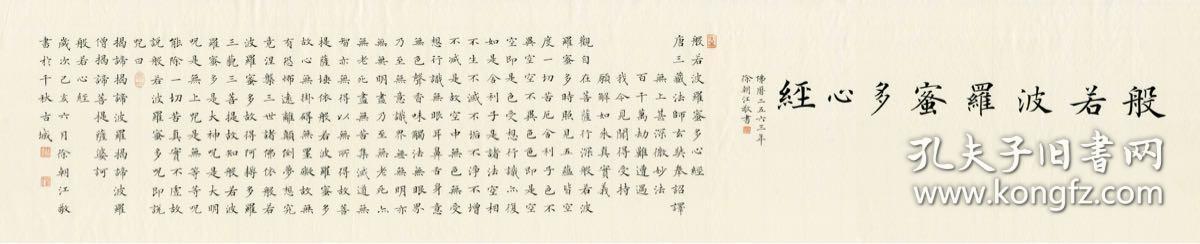 般若波羅蜜多心經
佛曆二五六三年
徐朝江敬書
般若波羅蜜多心經
唐三藏法師玄奘奉詔譯
無上甚深微妙法
百千萬劫難遭遇
我今見聞得受持
願解如來真實義
觀自在菩薩行深般若波
羅蜜多時照見五蘊皆空
度一切苦厄舍利子色不
異空空不異色色即是空
空即是色受想行識亦復
如是舍利子是諸法空相
不生不滅不垢不淨不增
不減是故空中色無受
想行識無眼耳鼻舌身意
無色聲香味觸法無眼界
乃至無意識界無無明亦
無無明盡乃至無老死亦
無老死盡無苦集滅道無
智亦無得以無所得故菩
提薩埵依般若波羅蜜多
故心無罣礙無罣礙故無
有恐怖遠離顛倒夢想究
竟涅槃三世諸佛依般若
波羅蜜多故得阿耨多羅
三藐三菩提故知般若波
羅蜜多是大神咒是大明
咒是無上咒是無等等咒
能除一切苦真實不虛故
說般若波羅蜜多咒即說
咒曰
揭諦揭諦波羅揭諦波羅
僧揭諦菩提薩婆訶
般若心經
歲次己亥六月徐朝江敬
書於千秋古城
孔夫子旧书网
www.kongfz.com